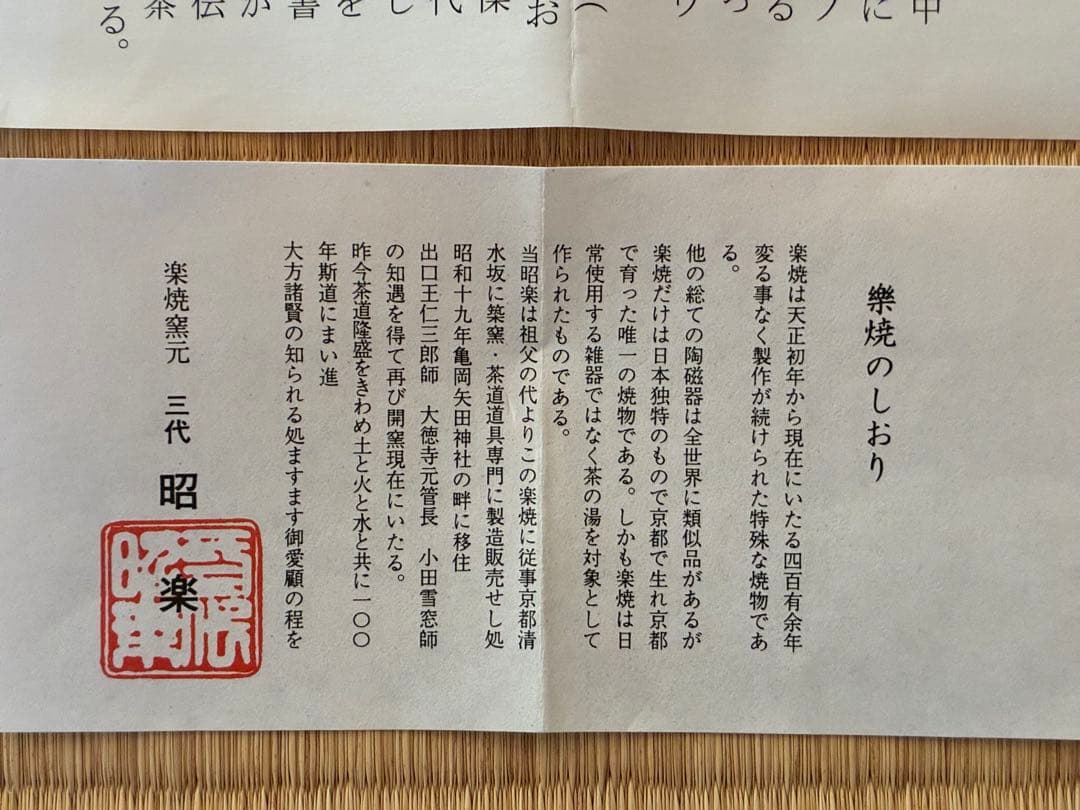 樂焼のしおり
楽焼は天正初年から現在にいたる四百有余年
変る事なく製作が続けられた特殊な焼物であ
る。
他の総ての陶磁器は全世界に類似品があるが
楽焼だけは日本独特のもので京都で生れ京都
で育った唯一の焼物である。しかも楽焼は日
常使用する雑器ではなく茶の湯を対象として
作られたものである。
当昭楽は祖父の代よりこの楽焼に従事京都清
水坂に築窯・茶道道具専門に製造販売せし処
昭和十九年亀岡矢田神社の畔に移住
出口王仁三郎師　大徳寺元管長　小田雪窓師
の知遇を得て再び開窯現在にいたる。
昨今茶道隆盛をきわめ土と火と水と共に一〇〇
年斯道にまい進
大方諸賢の知られる処ますます御愛顧の程を
楽焼窯元　三代　昭楽